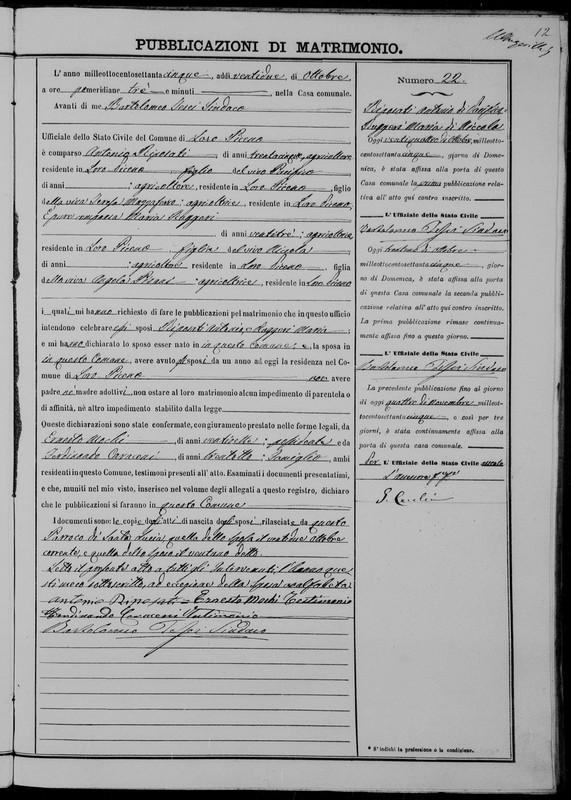 12
PUBBLICAZIONI DI MATRIMONIO.
L'anno milleottocentosettantacinque, addì ventidue, di Ottobre
a ore pomeridiane tre e minuti, nella Casa comunale.
Avanti di me Bartolomeo Sindaco
Ufficiale dello Stato Civile del Comune di Loro Piceno
è comparso Antonio Riposati di anni trentacinque, agricoltore
residente in Loro Piceno figlio del vivo Pacifico
di anni : agricoltore, residente in Loro Piceno, figlio
della viva Teresa : agricoltrice, residente in Loro Piceno,
E pure comparsa Maria Ruggeri
di anni ventitrè : agricoltrice
residente in Loro Piceno figlia del vivo Nicola
di anni : agricoltore residente in Loro Piceno figlia
della viva Angela : agricoltrice, residente in Loro Piceno
i quali mi hanno richiesto di fare le pubblicazioni pel matrimonio che in questo ufficio
intendono celebrare essi sposi Riposati Antonio, e Ruggeri Maria
e mi hanno dichiarato lo sposo esser nato in in questo Comune e, la sposa in
in questo Comune, avere avuto gli sposi da un anno ad oggi la residenza nel Co-
mune di Loro Piceno non avere
padre nè madre adottivi, non ostare al loro matrimonio alcun impedimento di parentela o
di affinità, nè altro impedimento stabilito dalla legge.
Queste dichiarazioni sono state confermate, con giuramento prestato nelle forme legali, da
Ernesto Mochi, di anni ventisette : possidente e da
Ferdinando Caraceni di anni trentotto : Famiglio ambi
residenti in questo Comune, testimoni presenti all'atto. Esaminati i documenti presentatimi,
e che, muniti nel mio visto, inserisco nel volume degli allegati a questo registro, dichiaro
che le pubblicazioni si faranno in questo Comune
I documenti sono: le copie degli atti di nascita degli sposi rilasciate da questo
Parroco di Santa Lucia quella della sposa il ventidue Ottobre
corrente, e quella dello sposo il ventuno detto.
Letto il presente atto a tutti gli Intervenuti, l'hanno que-
sti meco sottoscritto, ad eccezione della Sposa analfabeta
Antonio Riposati Ernesto Mochi Testimonio
Ferdinando Caraceni Testimonio
Bartolomeo Sindaco
Numero 22.
Riposati Antonio di Pacifico
Ruggeri Maria di Nicola
Oggi ventiquattro di Ottobre, milleotto-
centosettantacinque, giorno di Dome-
nica, è stata affissa alla porta di questa
Casa comunale la prima pubblicazione rela-
tiva all'atto qui contro inscritto.
L'Uffiziale dello Stato Civile
Bartolomeo Sindaco
Oggi trentuno di ottobre
milleottocentosettantacinque, gior-
no di Domenica, è stata affissa alla porta
di questa Casa comunale la seconda pubbli-
cazione relativa all'atto qui contro inscritto.
La prima pubblicazione rimase continua-
mente affissa fino a questo giorno.
L'Uffiziale dello Stato Civile
Bartolomeo Sindaco
La precedente pubblicazione fino al giorno
di oggi quattro di novembre milleot-
tocentosettantacinque e così per tre
giorni, è stata continuamente affissa alla
porta di questa casa comunale.
Per L'Uffiziale dello Stato Civile
* S'indichi la professione o la condizione.